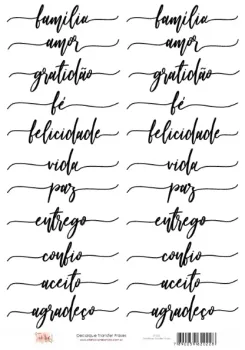 família família
amor amor
gratidão gratidão
fé fé
felicidade felicidade
vida vida
paz paz
entrego entrego
confio confio
aceito aceito
agradeço agradeço
Decalque Transfer Frases